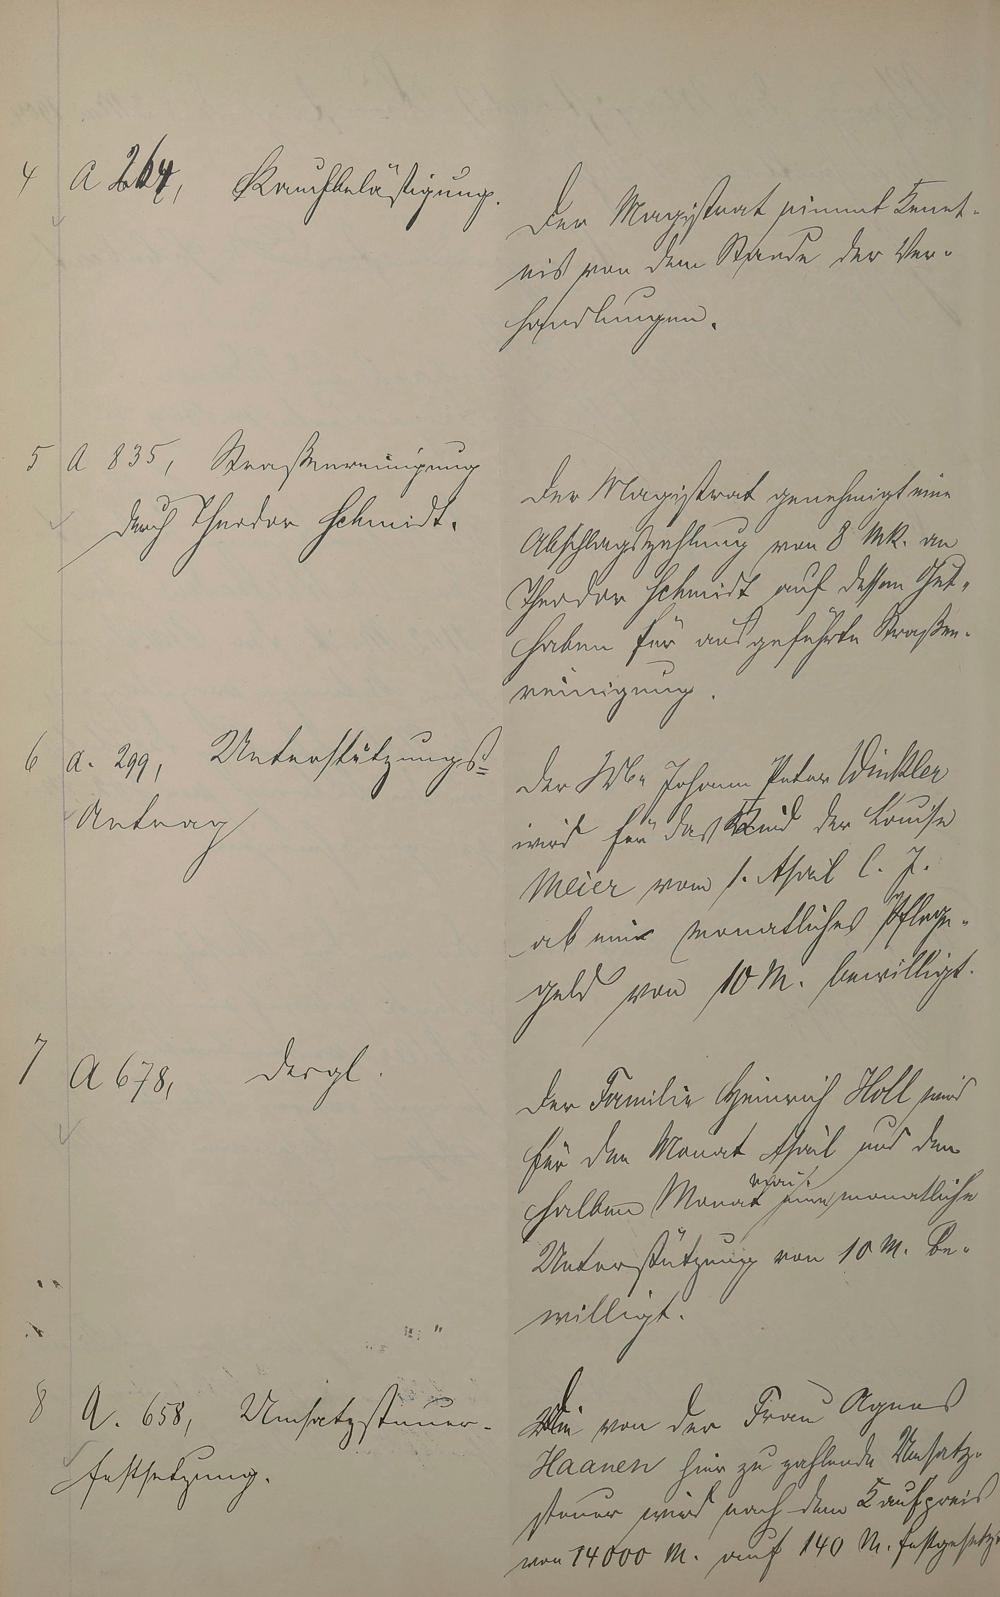 4 A 264, Rauchbelästigung.
Der Magistrat nimmt Kennt-
nis von dem Stande der Ver-
handlungen.
5 A 835, Straßenreinigung
durch Theodor Schmidt.
Der Magistrat genehmigt eine
Abschlagszahlung von 8 Mk. an
Theodor Schmidt auf dessen Gut-
haben für ausgeführte Straßen-
reinigung.
6 A. 299, Unterstützungs-
Antrag
Der Wwe Johann Peter Winkler
wird für das Kind der Louise
Meier vom 1. April l. J.
ab eine monatliches Pflege-
geld von 10 M. bewilligt.
7 A 678, dergl.
Der Familie Heinrich Holl wird
für den Monat April und den
halben Monat Mai eine monatliche
Unterstützung von 10 M. be-
willigt.
8 A. 658, Umsatzsteuer-
festsetzung.
Die von der Frau Agnes
Haanen hier zu zahlende Umsatz-
steuer wird nach dem Kaufpreis
von 14000 M. auf 140 M. festgesetzt